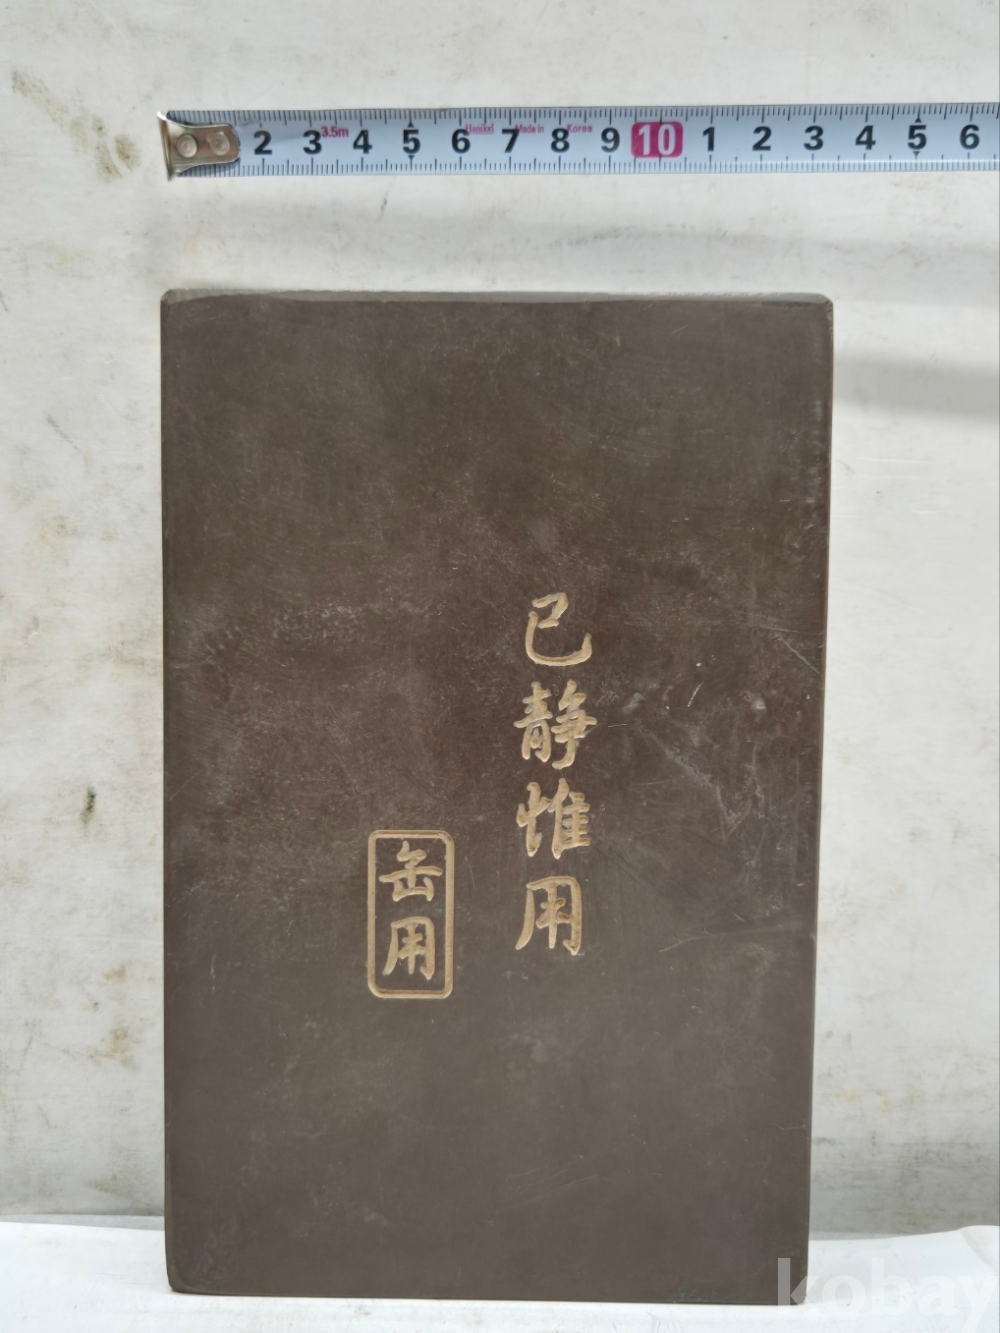 2 3 3.5m 4 5 6 7 Made in 8 Korea 9 10 1 2 3 4 5 6
已静惟用
缶用
kobay